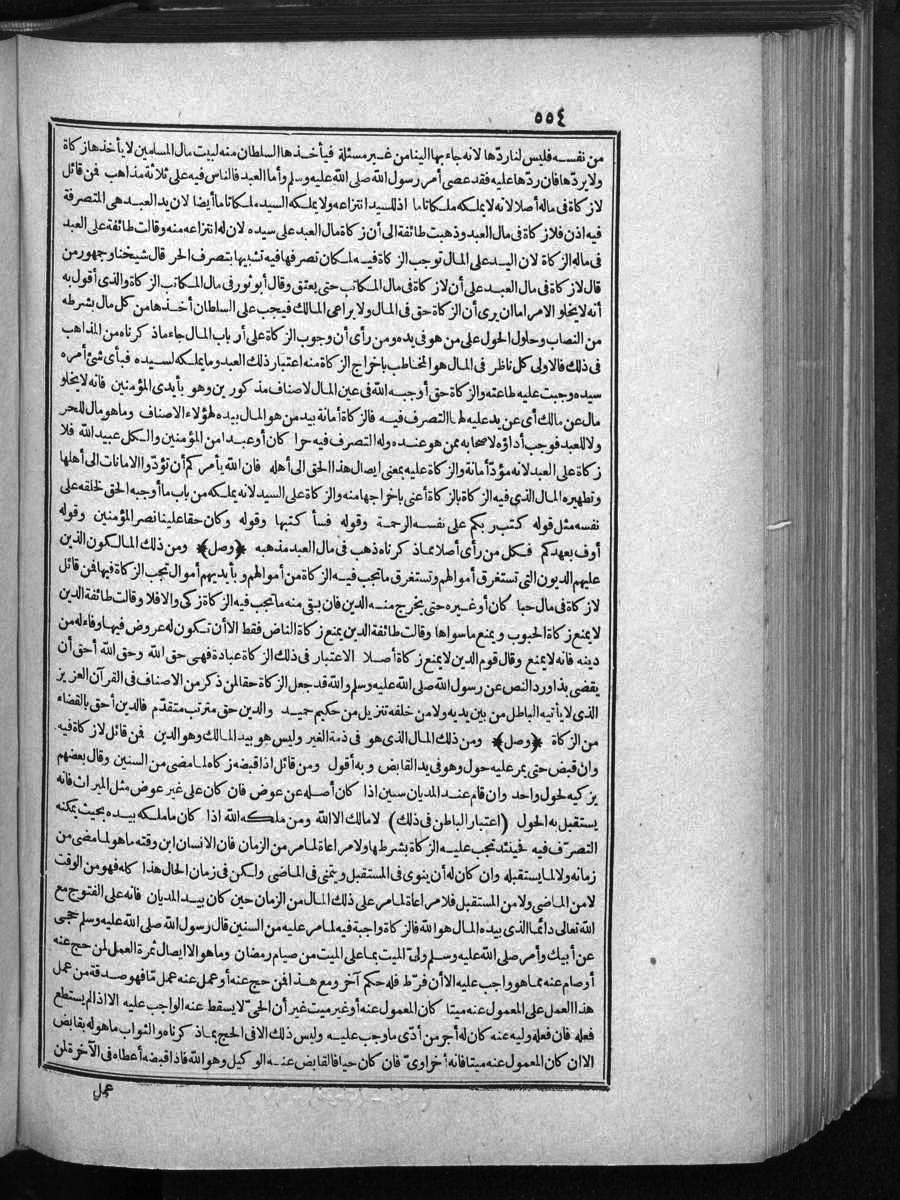 ٥٥٤
من نفسه فليس لنا ردّها لانه جاء بها الينا من غير مسئلة فيأخذها السلطان منه لبيت مال المسلمين لا يأخذها زكاة
ولا يردّها فان ردّها عليه فقد عصى أمر رسول الله صلى الله عليه وسلم وأما العبد فالناس فيه على ثلاثة مذاهب فمن قائل
لا زكاة فى ماله أصلا لانه لا يملكه ملكا تاما اذ للسيد انتزاعه ولا يملكه السيد ملكا تاما أيضا لان يد العبد هى المتصرفة
فيه اذن فلا زكاة فى مال العبد وذهبت طائفة الى أن زكاة مال العبد على سيده لان له انتزاعه منه وقالت طائفة على العبد
فى ماله الزكاة لان اليد على المال توجب الزكاة فيه لمكان تصرفها فيه تشبيها بتصرف الحر قال شيخنا وجمهور من
قال لا زكاة فى مال العبد على أن لا زكاة فى مال المكاتب حتى يعتق وقال أبو ثور فى مال المكاتب الزكاة والذى أقول به
أنه لا يخلو الامر اما ان يرى أن الزكاة حق فى المال ولا يراعى المالك فيجب على السلطان أخذها من كل مال بشرطه
من النصاب وحلول الحول على من هو فى يده ومن رأى أن وجوب الزكاة على أرباب المال جاء ماذ كرناه من المذاهب
فى ذلك فالاولى كل ناظر فى المال هو المخاطب باخراج الزكاة منه اعتبار ذلك العبد وما يملكه لسيده فبأى شئ أمره
سيده وجبت عليه طاعته والزكاة حق أوجبه الله فى عين المال لاصناف مذكورين وهو بأيدى المؤمنين فانه لا يخلو
مال عن مالك أى عن يد عليه لها التصرف فيه فالزكاة أمانة بيد من هو المال بيده لهؤلاء الاصناف وما هو مال للحر
ولا للعبد فوجب أداؤه لاصحابه ممن هو عنده وله التصرف فيه حرا كان أو عبدا من المؤمنين والكل عبيد الله فلا
زكاة على العبد لانه مؤدّ أمانة والزكاة عليه بمعنى ايصال هذا الحق الى أهله فان الله يأمركم أن تؤدّوا الامانات الى أهلها
وتطهيره المال الذى فيه الزكاة بالزكاة أعنى باخراجها منه والزكاة على السيد لانه يملكه من باب ما أوجبه الحق لخلقه على
نفسه مثل قوله كتب ربكم على نفسه الرحمة وقوله فسأ كتبها وقوله وكان حقا علينا نصر المؤمنين وقوله
أوف بعهدكم فكل من رأى أصلا مماذ كرناه ذهب فى مال العبد مذهبه ﴿وصل﴾ ومن ذلك المالكون الذين
عليهم الديون التى تستغرق أموالهم وتستغرق ما تجب فيه الزكاة من أموالهم وبأيديهم أموال تجب الزكاة فيها فمن قائل
لا زكاة فى مال حبا كان أو غيره حتى يخرج منه الدين فان بقى منه ما تجب فيه الزكاة زكى والا فلا وقالت طائفة الدين
لا يمنع زكاة الحبوب ويمنع ما سواها وقالت طائفة الدين يمنع زكاة الناض فقط الا أن تكون له عروض فيها وفاء له من
دينه فانه لا يمنع وقال قوم الدين لا يمنع زكاة أصلا الاعتبار فى ذلك الزكاة عبادة فهى حق الله وحق الله أحق أن
يقضى بذا ورد النص عن رسول الله صلى الله عليه وسلم والله قد جعل الزكاة حقا لمن ذكر من الاصناف فى القرآن العزيز
الذى لا يأتيه الباطل من بين يديه ولا من خلفه تنزيل من حكيم حميد والدين حق مترتب متقدّم فالدين أحق بالقضاء
من الزكاة ﴿وصل﴾ ومن ذلك المال الذى هو فى ذمة الغير وليس هو بيد المالك وهو الدين فمن قائل لا زكاة فيه
وان قبض حتى يمر عليه حول وهو فى يد القابض وبه أقول ومن قائل اذا قبضه زكاه لما مضى من السنين وقال بعضهم
يزكيه لحول واحد وان قام عند المديان سنين اذا كان أصله عن عوض فان كان على غير عوض مثل الميراث فانه
يستقبل به الحول (اعتبار الباطن فى ذلك) لا مالك الا الله ومن ملكه الله اذا كان ما ملكه بيده بحيث يمكنه
التصرّف فيه فحينئذ تجب عليه الزكاة بشرطها ولا مراعاة لما مر من الزمان فان الانسان ابن وقته ما هو لما مضى من
زمانه ولا لما يستقبله وان كان له أن ينوى فى المستقبل ويتمنى فى الماضى ولكن فى زمان الحال هذا كله فهو من الوقت
لا من الماضى ولا من المستقبل فلا مراعاة لما مر على ذلك المال من الزمان حين كان بيد المديان فانه على الفتوح مع
الله تعالى دائما الذى بيده المال هو الله فالزكاة واجبة فيه لما مر عليه من السنين قال رسول الله صلى الله عليه وسلم حجى
عن أبيك وأمر صلى الله عليه وسلم ولىّ الميت بما على الميت من صيام رمضان وما هو الا ايصال ثمرة العمل لمن حج عنه
أو صام عنه مما هو واجب عليه الا أن فرّط فله حكم آخر ومع هذا فمن حج عنه أو عمل عنه عمل مّا فهو صدقة من عمل
هذا العمل على المعمول عنه ميتا كان المعمول عنه أو غير ميت غير أن الحىّ لا يسقط عنه الواجب عليه الا اذا لم يستطع
فعله فان فعله وليه عنه كان له أجر من أدّى ما وجب عليه وليس ذلك الا فى الحج بماذ كرناه والثواب ما هو له بقابض
الا ان كان المعمول عنه ميتا فانه أخراوىّ فان كان حيا فالقابض عنه الوكيل وهو الله فاذا قبضه أعطاه فى الآخرة لمن
عمل